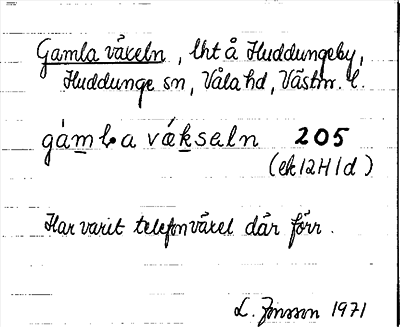 Gamla växeln, lht å Huddungeby,
Huddunge sn, Våla hd, Västm. l.
gámla vǽkseln 205
(ek 12H 1d)
Har varit telefonväxel där förr.
L. Jonsson 1971